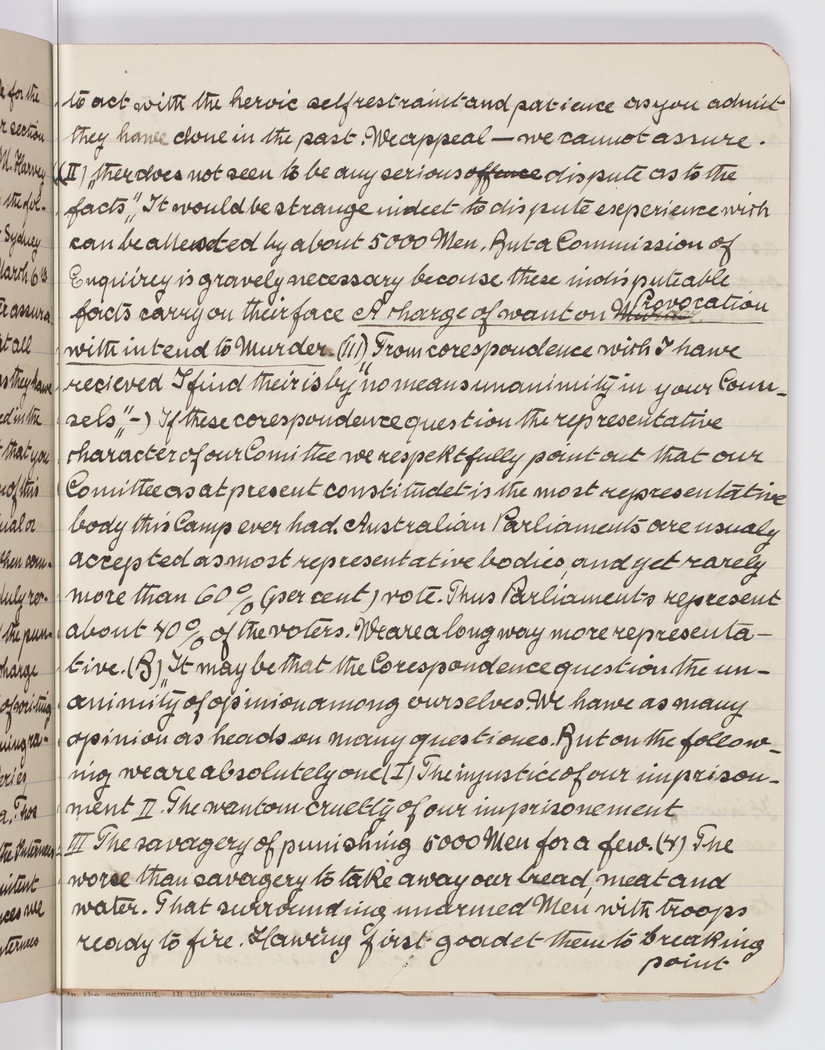 to act with the heroic selfrestraint and patience as you admit
they hawe done in the past. We appeal — we cannot assure.
(II) „ther does not seen to be any serious offence dispute as to the
facts." It would be strange indeet to dispute esperience wich
can be attested by about 5000 Men. But a Commission of
Enquirey is gravely necessary becouse these indisputeable
facts carry on their face A charge of want on Murder Provocation
with intend to Murder. (III) „From corespondence wich I hawe
recieved I find their is by no means unanimity in your Coun-
sels"-) If these corespondence question the representative
character of our Comittee we respektfully point out that our
Comittee as at present constitudet is the most representative
body this Camp ever had. Australian Parliaments are usualy
accepted as most representative bodies, and yet rarely
more than 60% (per cent) vote. Thus Parliaments represent
about 40% of the voters. We are a long way more representa-
tive. (B) „It may be that the Corespondence question the un-
animity of opinion among ourselves. We hawe as many
opinion as heads on many questiones. But on the follow-
ing we are absolutely one (I) The injustice of our imprison-
ment II. The wantom cruelty of our imprisonement
III The savagery of punishing 5000 Men for a few. (4) The
worse than savagery to take away our bread, meat and
water. That surrounding unarmed Men with troops
ready to fire. Hawing first goadet them to breaking
point
for the
r section
M. Harvey
Sydney
March 6th
at all
that you
of this
charge
of writing
we